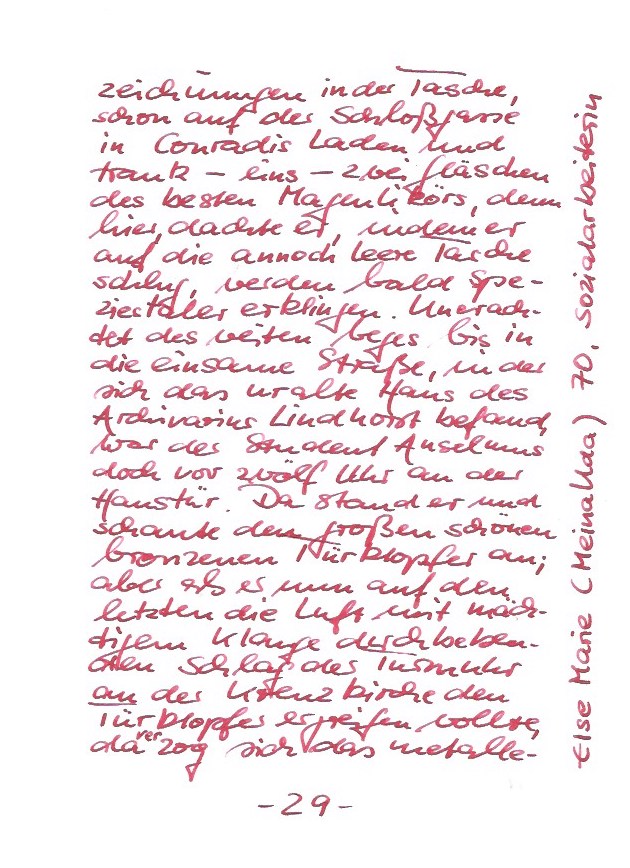 zeichnungen in der Tasche,
schon auf der Schloßgasse
in Conradis Laden und
trank – eins – zwei Gläschen
des besten Magenlikörs, denn
hier, dachte er, indem er
auf die annoch leere Tasche
schlug, werden bald Spe-
ziestaler erklingen. Unerach-
tet des weiten Weges bis in
die einsame Straße, in der
sich das uralte Haus des
Archivarius Lindhorst befand,
war der Student Anselmus
doch vor zwölf Uhr an der
Haustür. Da stand er und
schaute den großen schönen
bronzenen Türklopfer an;
aber als er nun auf den
letzten die Luft mit mäch-
tigem Klange durchbeben-
den Schlag der Turmuhr
an der Kreuzkirche den
Türklopfer ergreifen wollte,
da verzog sich das metalle-
-29-
Else Marie (Meinahda) 70, Sozialarbeiterin